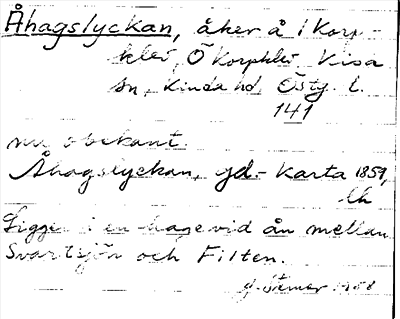 Åhagslyckan, åker å 1 Korp-
klev, Ö Korpklev, Kisa
sn, Kinda hd, Östg. l.
141
nu obekant.
Åhagslyckan, gd.- karta 1859,
lh
Ligger i en hage vid ån mellan
Svartsjön och Filten.